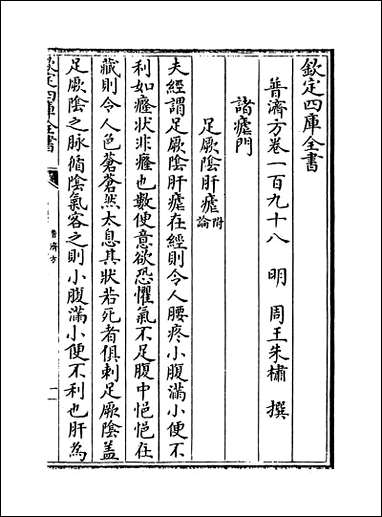 欽定四庫全書
普濟方卷一百九十八 明 周王朱橚 撰
諸瘧門
足厥陰肝瘧附論
夫經謂足厥陰肝瘧在經則令人腰疼小腹滿小便不
利如癃狀非癃也數便意欲恐懼氣不足腹中悒悒在
藏則令人色蒼蒼然太息其狀若死者俱刺足厥陰蓋
足厥陰之脉循陰氣客之則小腹滿小便不利也肝為
欽定四庫全書
普濟方
一